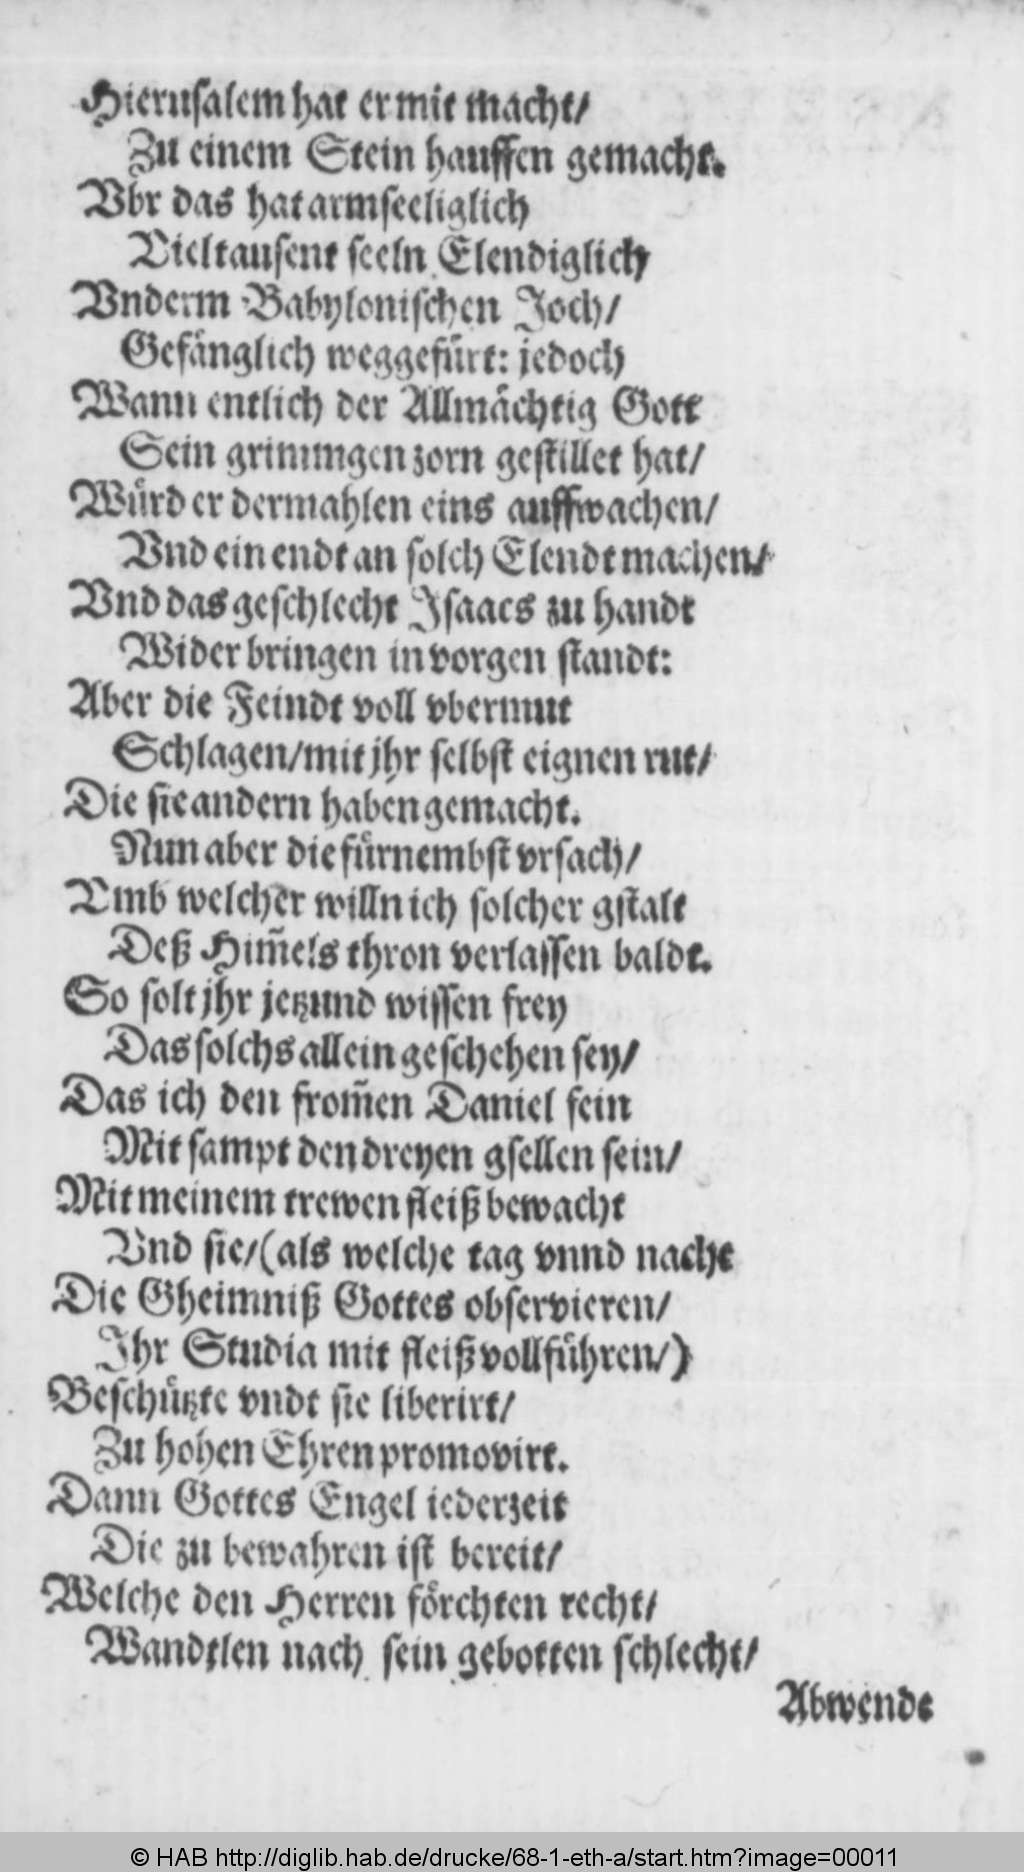 Hierusalem hat er mit macht/
Zu einem Stein hauffen gemacht.
Vbr das hat armseeliglich
Vieltausent seeln Elendiglich
Vnderm Babylonischen Joch/
Gefänglich weggefürt: jedoch
Wann entlich der Allmächtig Gott
Sein grimmgen zorn gestillet hat/
Würd er dermahlen eins auffwachen/
Vnd ein endt an solch Elendt machen/
Vnd das geschlecht Isaacs zu handt
Wider bringen in vorgen standt:
Aber die Feindt voll vbermut
Schlagen/mit jhr selbst eignen rut/
Die sie andern haben gemacht.
Nun aber die fürnembst vrsach/
Vmb welcher willn ich solcher gstalt
Deß Him̃els thron verlassen baldt.
So solt jhr jetzund wissen frey
Das solchs allein geschehen sey/
Das ich den from̃en Daniel fein
Mit sampt den dreyen gsellen sein/
Mit meinem trewen fleiß bewacht
Vnd sie/(als welche tag vnnd nacht
Die Gheimniß Gottes observieren/
Ihr Studia mit fleiß vollführen/)
Beschützte vndt sie liberirt/
Zu hohen Ehren promovirt.
Dann Gottes Engel iederzeit
Die zu bewahren ist bereit/
Welche den Herren förchten recht/
Wandtlen nach sein gebotten schlecht/
Abwendt
© HAB http://diglib.hab.de/drucke/68-1-eth-a/start.htm?image=00011